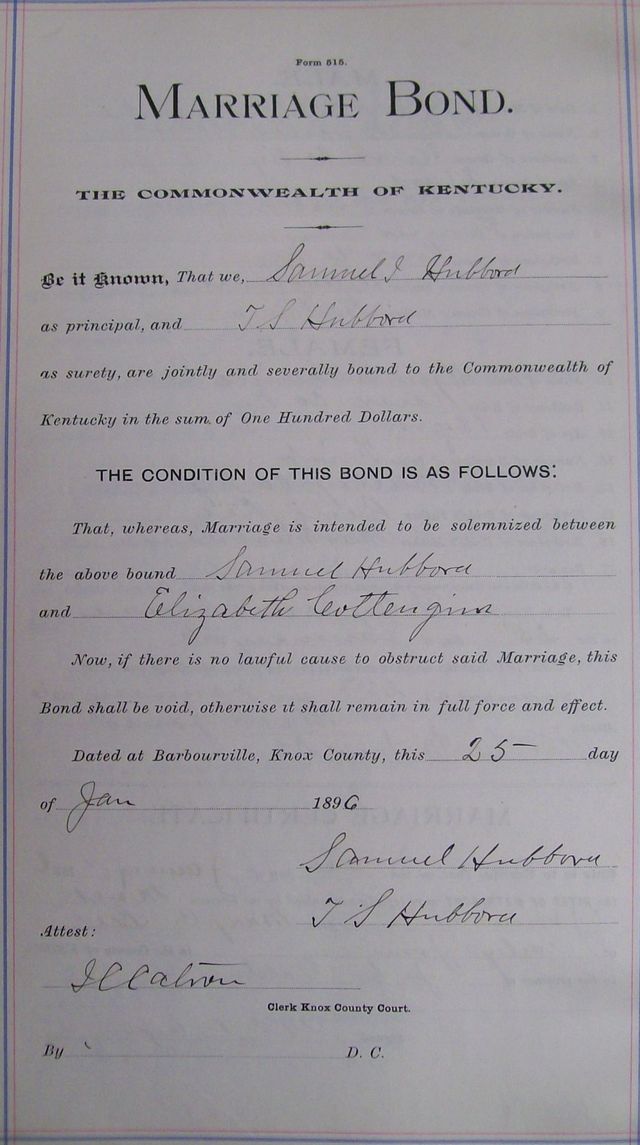 Form 515.
MARRIAGE BOND.
THE COMMONWEALTH OF KENTUCKY.
Be it Known, That we, Samuel I Hubbord
as principal, and T S Hubbord
as surety, are jointly and severally bound to the Commonwealth of
Kentucky in the sum of One Hundred Dollars.
THE CONDITION OF THIS BOND IS AS FOLLOWS:
That, whereas, Marriage is intended to be solemnized between
the above bound Samuel Hubbord
and Elizabeth Cottengim
Now, if there is no lawful cause to obstruct said Marriage, this
Bond shall be void, otherwise it shall remain in full force and effect.
Dated at Barbourville, Knox County, this 25 day
of Jan 1896
Samuel Hubbord
T S Hubbord
Attest:
Clerk Knox County Court.
By D. C.